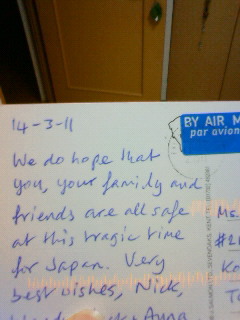 14-3-11
BY AIR M
par avion
We do hope that
you, your family and
friends are all safe
at this tragic time
for Japan. Very
best wishes, Nick,
Anna
Ms.
#21
Ko
To